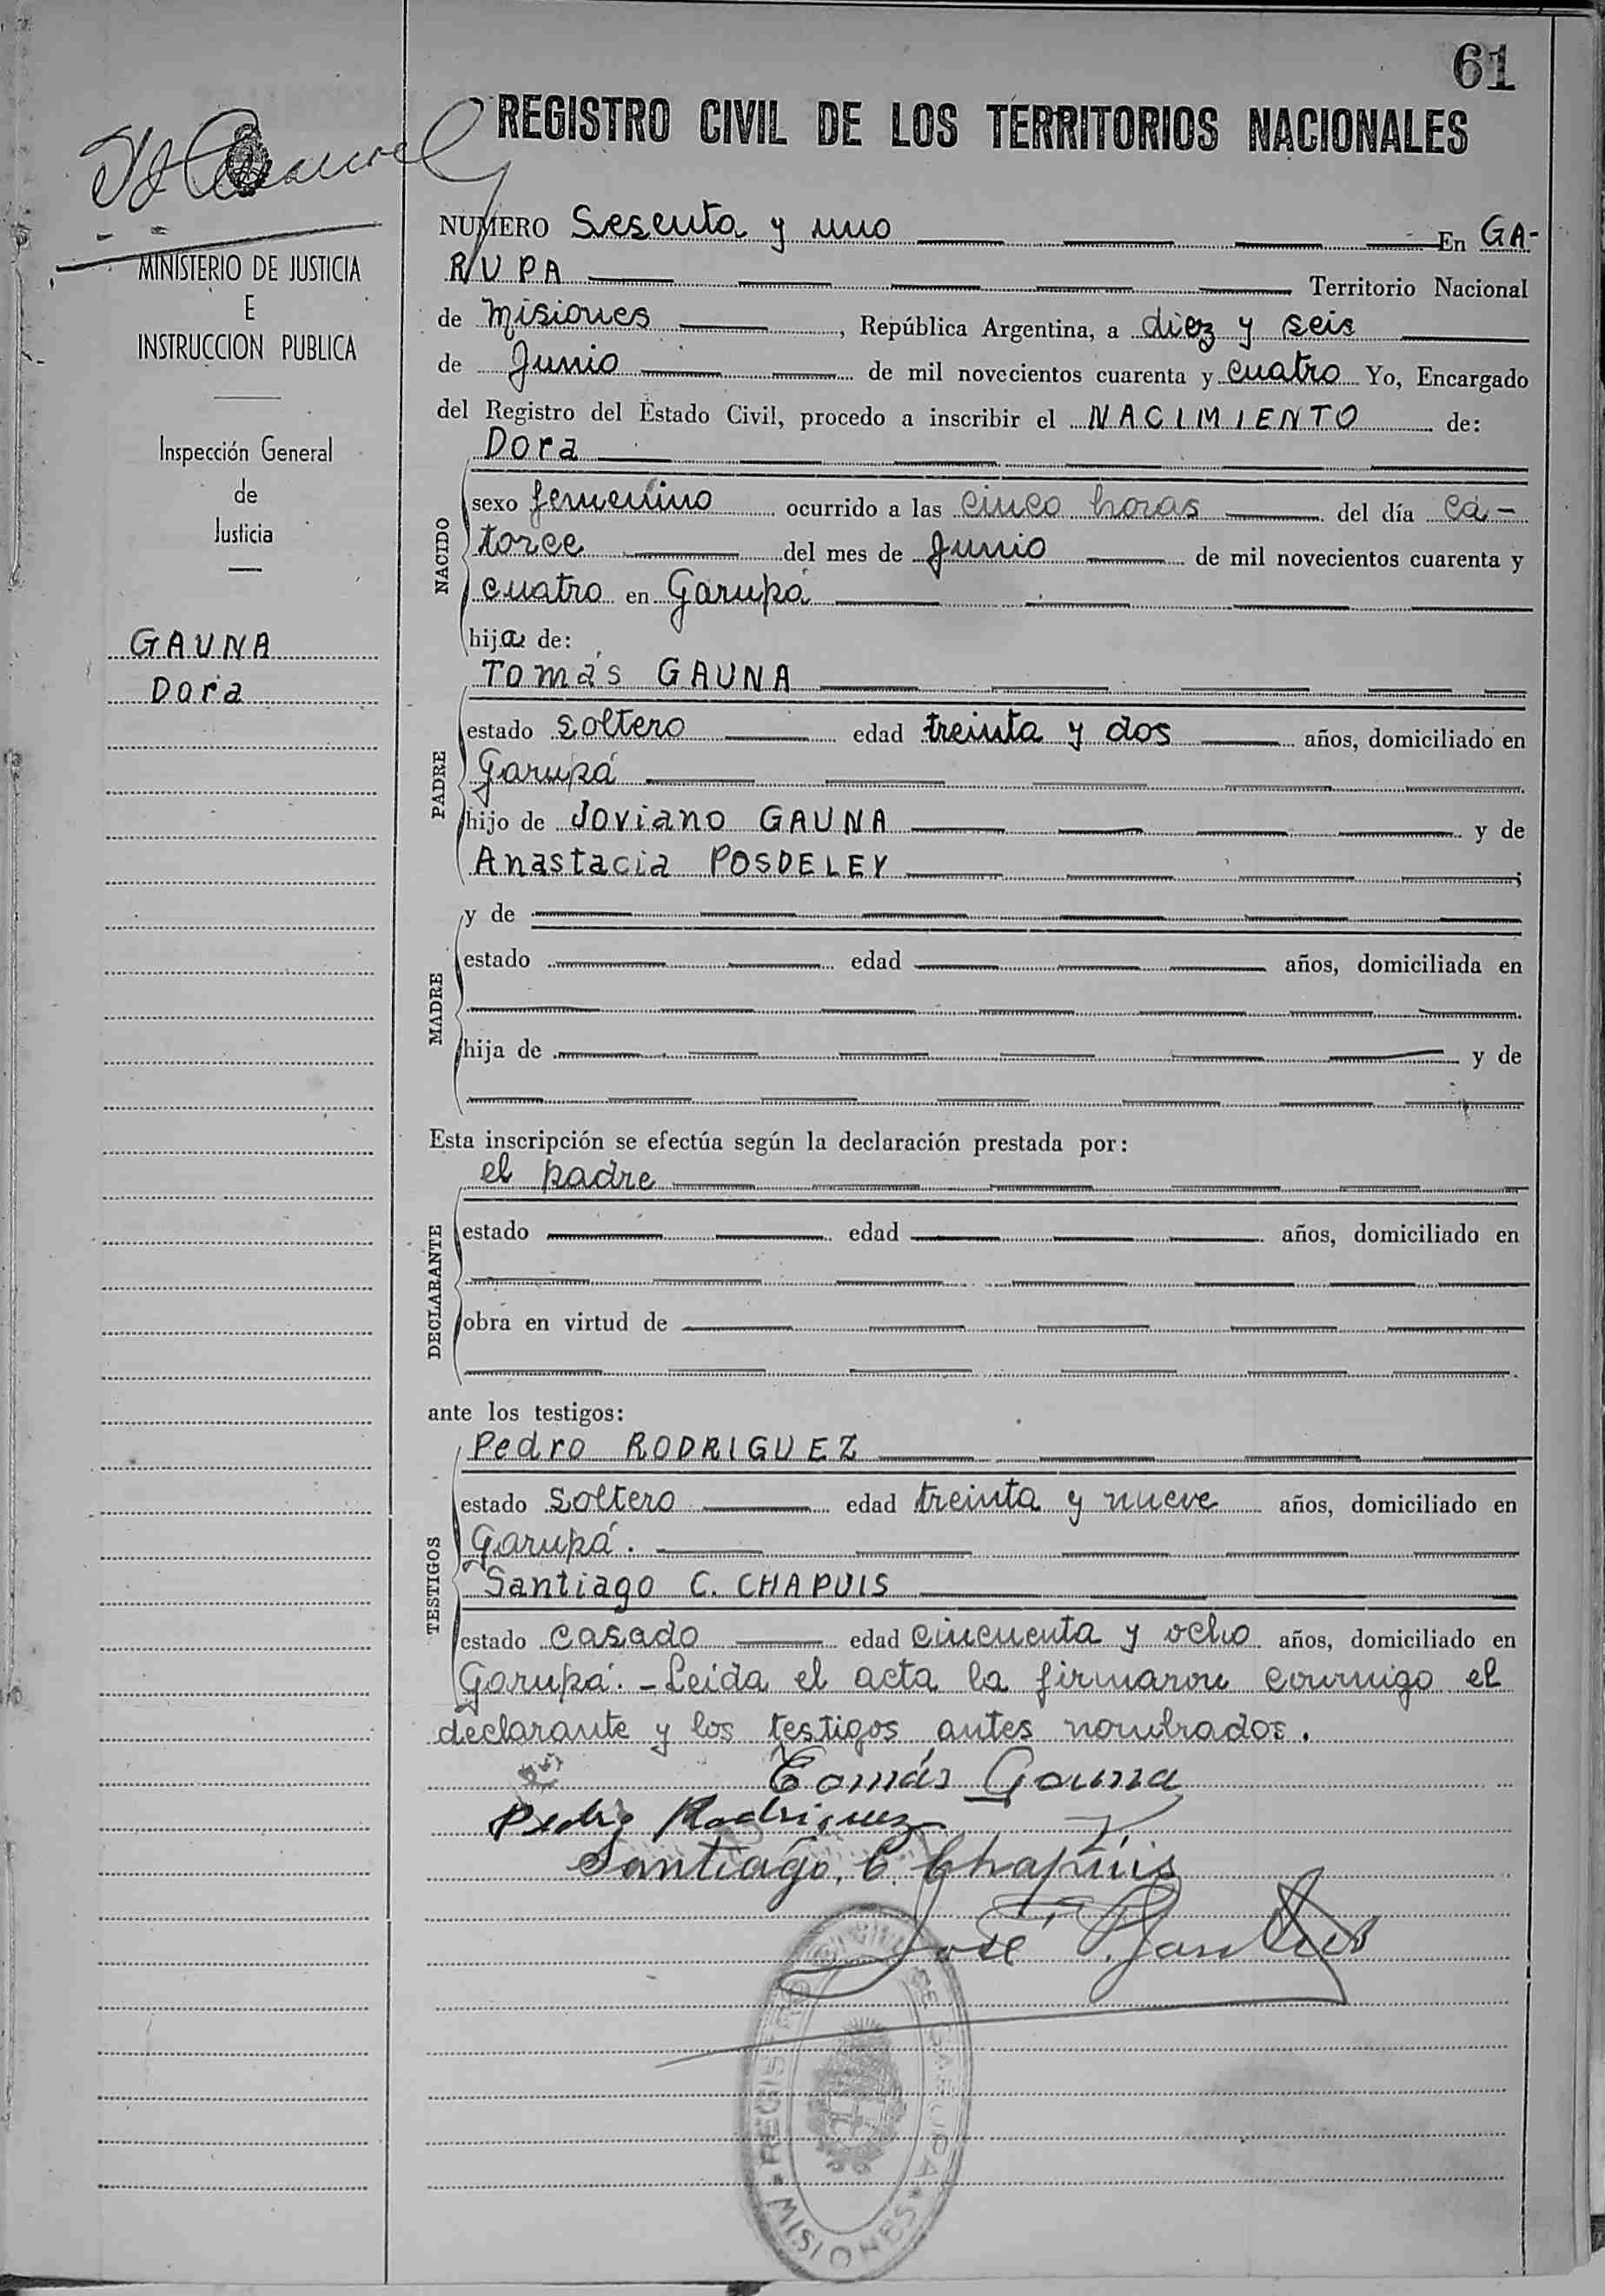 61
REGISTRO CIVIL DE LOS TERRITORIOS NACIONALES
MINISTERIO DE JUSTICIA
E
INSTRUCCION PUBLICA
Inspección General
de
Justicia
GAUNA
Dora
NUMERO Sesenta y uno En GA-
RUPA Territorio Nacional
de Misiones, República Argentina, a diez y seis
de Junio de mil novecientos cuarenta y cuatro Yo, Encargado
del Registro del Estado Civil, procedo a inscribir el NACIMIENTO de:
Dora
NACIDO
sexo femenino ocurrido a las cinco horas del día ca-
torce del mes de Junio de mil novecientos cuarenta y
cuatro en Garupá
hija de:
Tomás GAUNA
PADRE
estado soltero edad treinta y dos años, domiciliado en
Garupá
hijo de Joviano GAUNA y de
Anastacia POSDELEY;
MADRE
y de
estado edad años, domiciliada en
hija de y de
Esta inscripción se efectúa según la declaración prestada por:
el padre
DECLARANTE
estado edad años, domiciliado en
obra en virtud de
ante los testigos:
Pedro RODRIGUEZ
TESTIGOS
estado soltero edad treinta y nueve años, domiciliado en
Garupá.
Santiago C. CHAPUIS
estado casado edad cincuenta y ocho años, domiciliado en
Garupá. - Leída el acta la firmaron conmigo el
declarante y los testigos antes nombrados.
Tomás Gauna
Pedro Rodriguez
Santiago C. Chapuis
José
REGISTRO CIVIL DE GARUPA
MISIONES